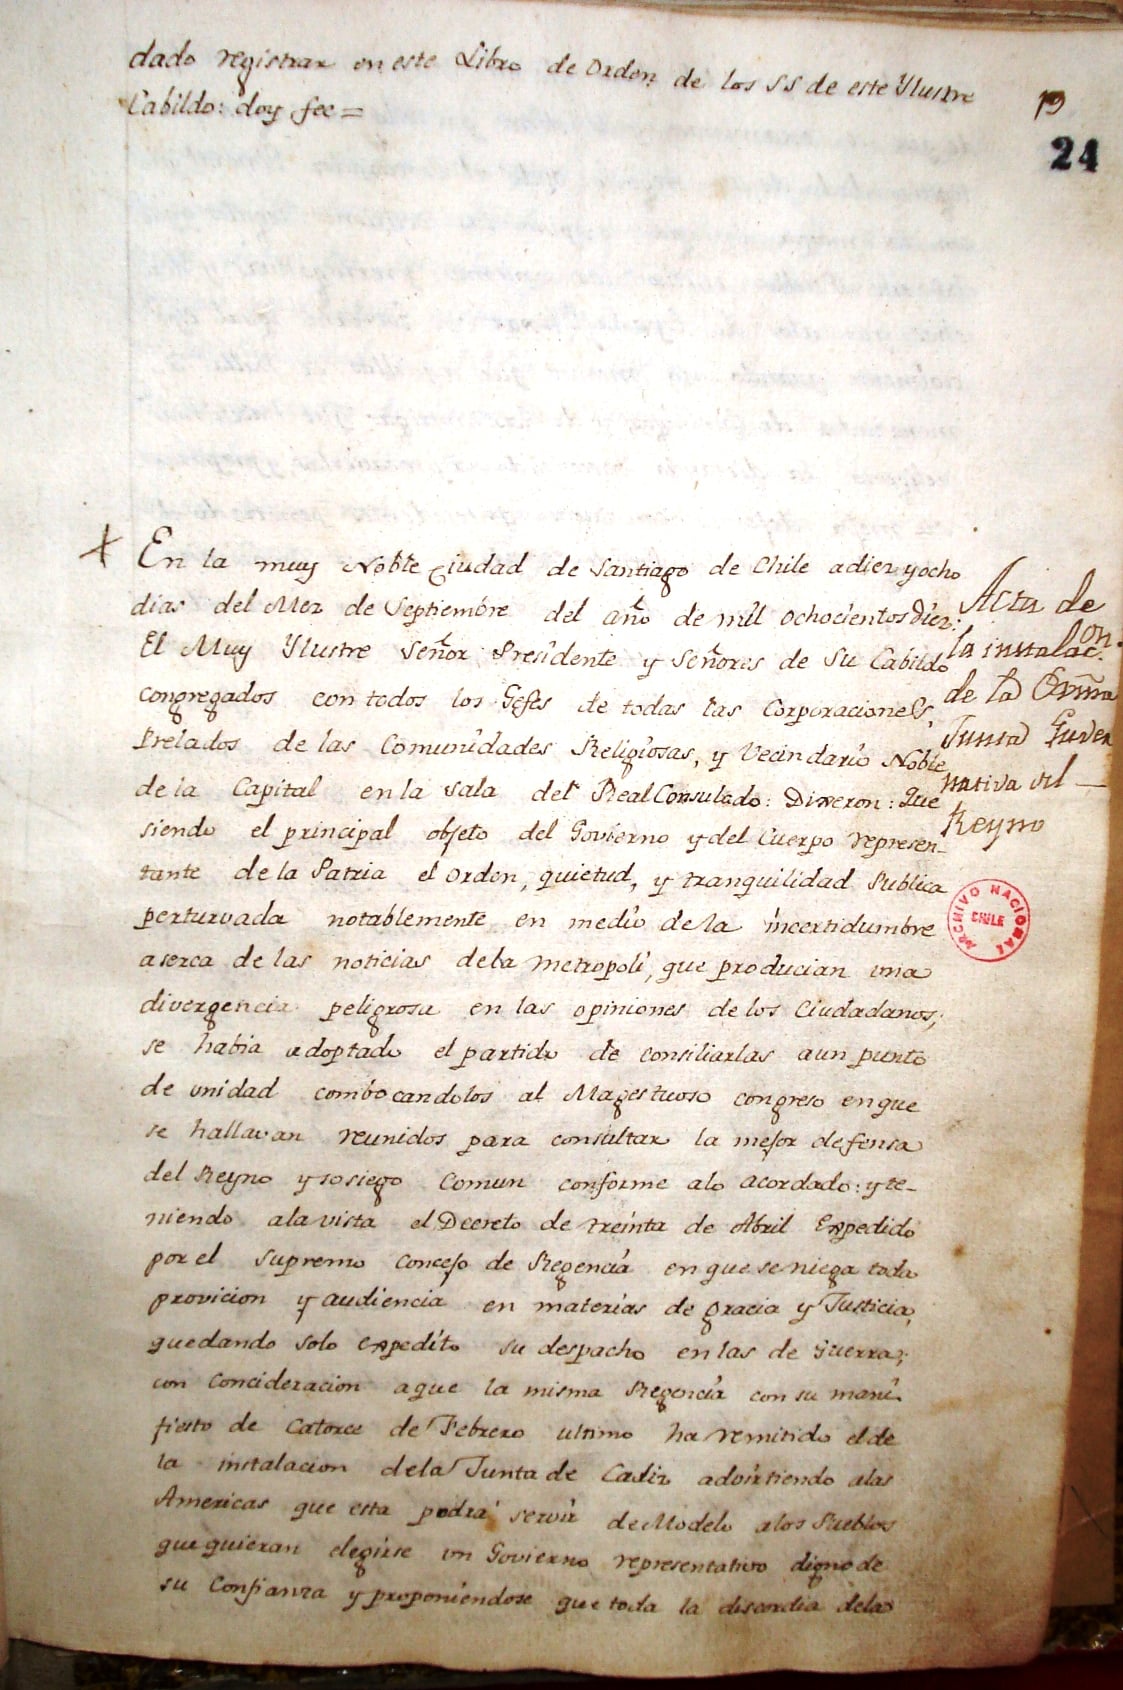 dado registrar en este Libro de Orden de los SS de este Ylustre
Cabildo: doy fee=
19
24
En la muy Noble Ciudad de Santiago de Chile a diez y ocho
dias del Mez de Septiembre del año de mil ochocientos diez:
El Muy Ylustre Señor Presidente y Señores de su Cabildo
congregados con todos los Gefes de todas las Corporaciones,
Prelados de las Comunidades Religiosas, y Vecindario Noble
de la Capital en la Sala del Real Consulado: Dixeron: Que
siendo el principal objeto del Govierno y del Cuerpo represen-
tante de la Patria el orden, quietud, y tranquilidad Publica
perturvada notablemente en medio de la incertidumbre
aserca de las noticias de la metropoli, que producian una
divergencia peligrosa en las opiniones de los Ciudadanos;
se habia adoptado el partido de consiliarlas a un punto
de unidad combocandolos al Magestuoso congreso en que
se hallavan reunidos para consultar la mejor defensa
del Reyno y sosiego comun conforme a lo acordado: y te-
niendo a la vista el Decreto de treinta de Abril Expedido
por el Supremo Concejo de Regencia en que se niega toda
provicion y audiencia en materias de gracia y Justicia,
quedando solo expedito su despacho en las de Guerra;
con concideracion a que la misma Regencia con su mani
fiesto de Catorce de Febrero ultimo ha remitido el de
la instalacion de la Junta de Cadiz advirtiendo a las
Americas que esta podrá servir de Modelo a los Pueblos
que quieran elegirse un Govierno representativo digno de
su Confianza y proponiendose que toda la discordia de la
Acta de
la instalac.on
de la
Junta Guver
nativa del
Reyno
ARCHIVO NACIONAL
CHILE